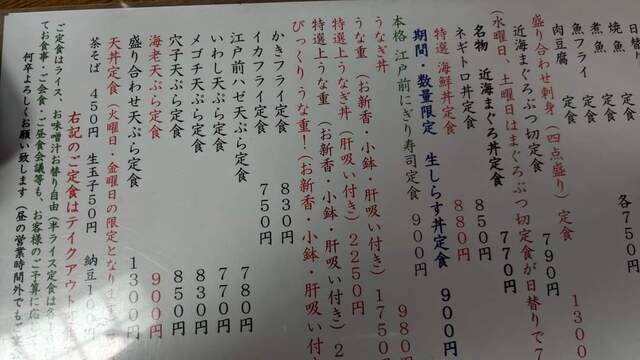 日替り
焼魚 定食
煮魚 定食
魚フライ 定食
肉豆腐 定食
各750円
盛り合わせ刺身(四点盛り)定食 1300
近海まぐろぶつ切定食 790円
(水曜日、土曜日はまぐろぶつ切定食が日替りで7
770円
名物 近海まぐろ丼定食 850円
ネギトロ丼定食 880円
特選 海鮮丼定食 900円
期間・数量限定 生しらす丼定食 900円
本格 江戸前にぎり寿司定食 980円
うなぎ丼 1750円
うな重(お新香・小鉢・肝吸い付き)2250円
特選上うなぎ丼(肝吸い付き)2
特選上うな重(お新香・小鉢・肝吸い付き)
びっくりうな重!(お新香・小鉢・肝吸い付
かきフライ定食 830円
イカフライ定食 750円
江戸前ハゼ天ぷら定食 780円
いわし天ぷら定食 770円
メゴチ天ぷら定食 830円
穴子天ぷら定食 850円
海老天ぷら定食 900円
盛り合わせ天ぷら定食 1300円
天丼定食(火曜日・金曜日の限定となりま
茶そば 450円 生玉子50円 納豆10
右記のご定食はテイクアウト
ご定食はライス、お味噌汁お替り自由(半ライス定食は
てお食事・ご会食・ご昼食会議等も、お客様のご予算に応
何卒よろしくお願い致します(昼の営業時間外でもご